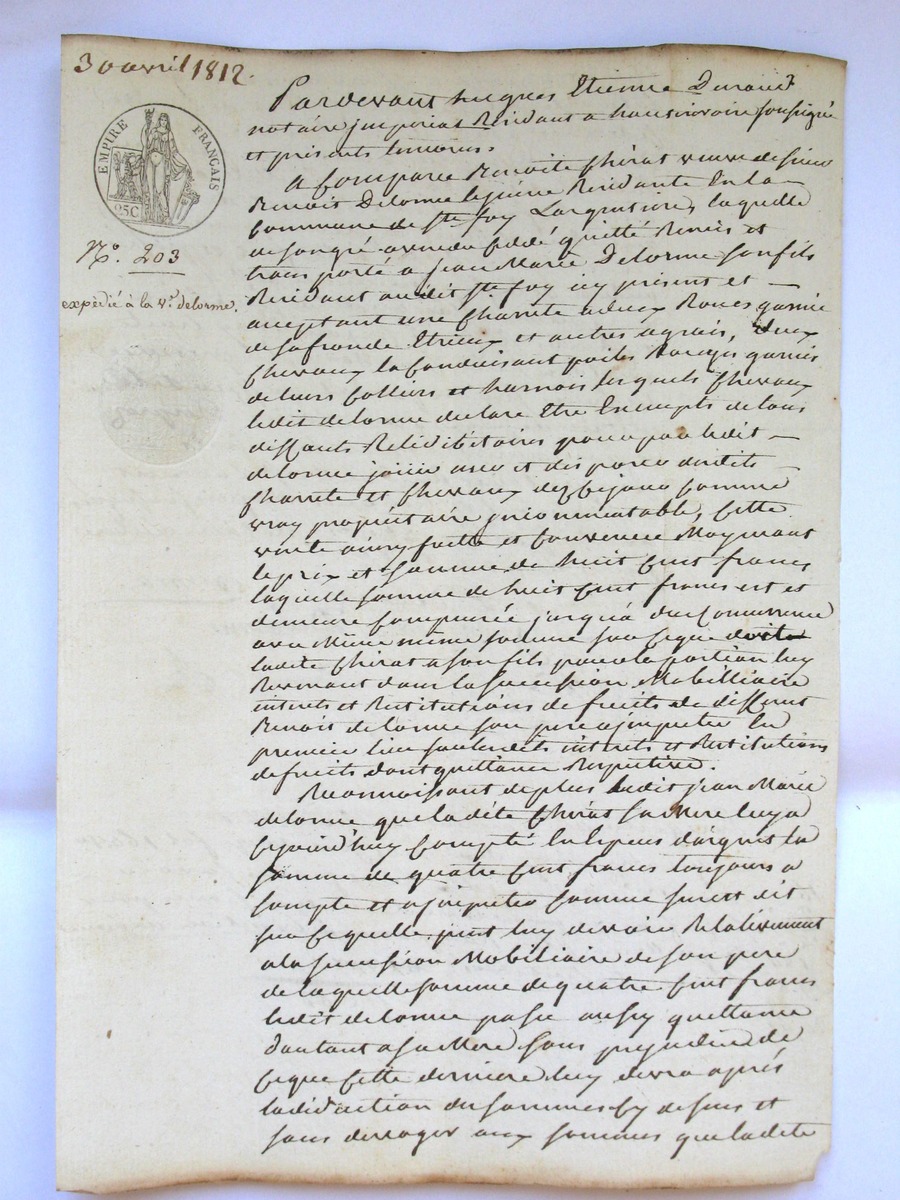 30 avril 1812.
EMPIRE FRANÇAIS
25C
N.o 203
expédié à la v.e delorme.
Pardevant hugues Etienne Durand
notaire imperial Residant a haute rivoire soussigné
et presents temoins.
A Comparu Benoite Chirat veuve de sieur
Benoit Delorme la ditte Residante En la
Commune de Ste foy Largentiere, laquelle
de son gré a vendu Cedé quitté Remis et
transporté a Jean Marie Delorme son fils
Residant audit Ste foy icy present et
acceptant une Charrete a deux Roues garnie
de sa fronde Etrieux et autres agrais, deux
Chevaux la Conduisant poiles Rouges garnis
de leurs Colliers et harnois lesquels Chevaux
ledit delorme declare Etre Exempts de tous
deffauts Redibitoires pour par ledit
delorme jouir user et disposer desdits
Charrete et Chevaux dez Cejour Comme
vray propriétaire incommutable, Cette
vente ainsy faitte et Convenue Moyenant
le prix et Somme de huit Cent francs
laquelle somme de huit Cent francs est et
demeure Compensée jusqu'a due Concurrence
avec même somme sur Ceque doit
ladite Chirat a son fils pour la portion luy
Revenant dans la succession Mobilliaire
interets et Restitutions de fruits de deffunt
Benoit delorme son pere a imputer En
premier lieu sur lesdits interets et Restitutions
de fruits dont quittance Respective.
Reconnoissant de plus ledit jean Marie
delorme que ladite Chirat sa Mere luy a
Cejourd'huy Compté En Especes d'argent la
Somme de quatre Cent francs toujours a
Compte et a imputer Comme sus est dit
sur Cequelle peut luy devoir Relativement
a la succession Mobiliaire de son pere
de laquelle somme de quatre Cent francs
ledit delorme passe aussy quittance
d'autant a sa Mere sans prejudice de
Ceque Cette derniere luy devra après
la deduction des sommes Cy dessus et
sans deroger aux sommes que ladite